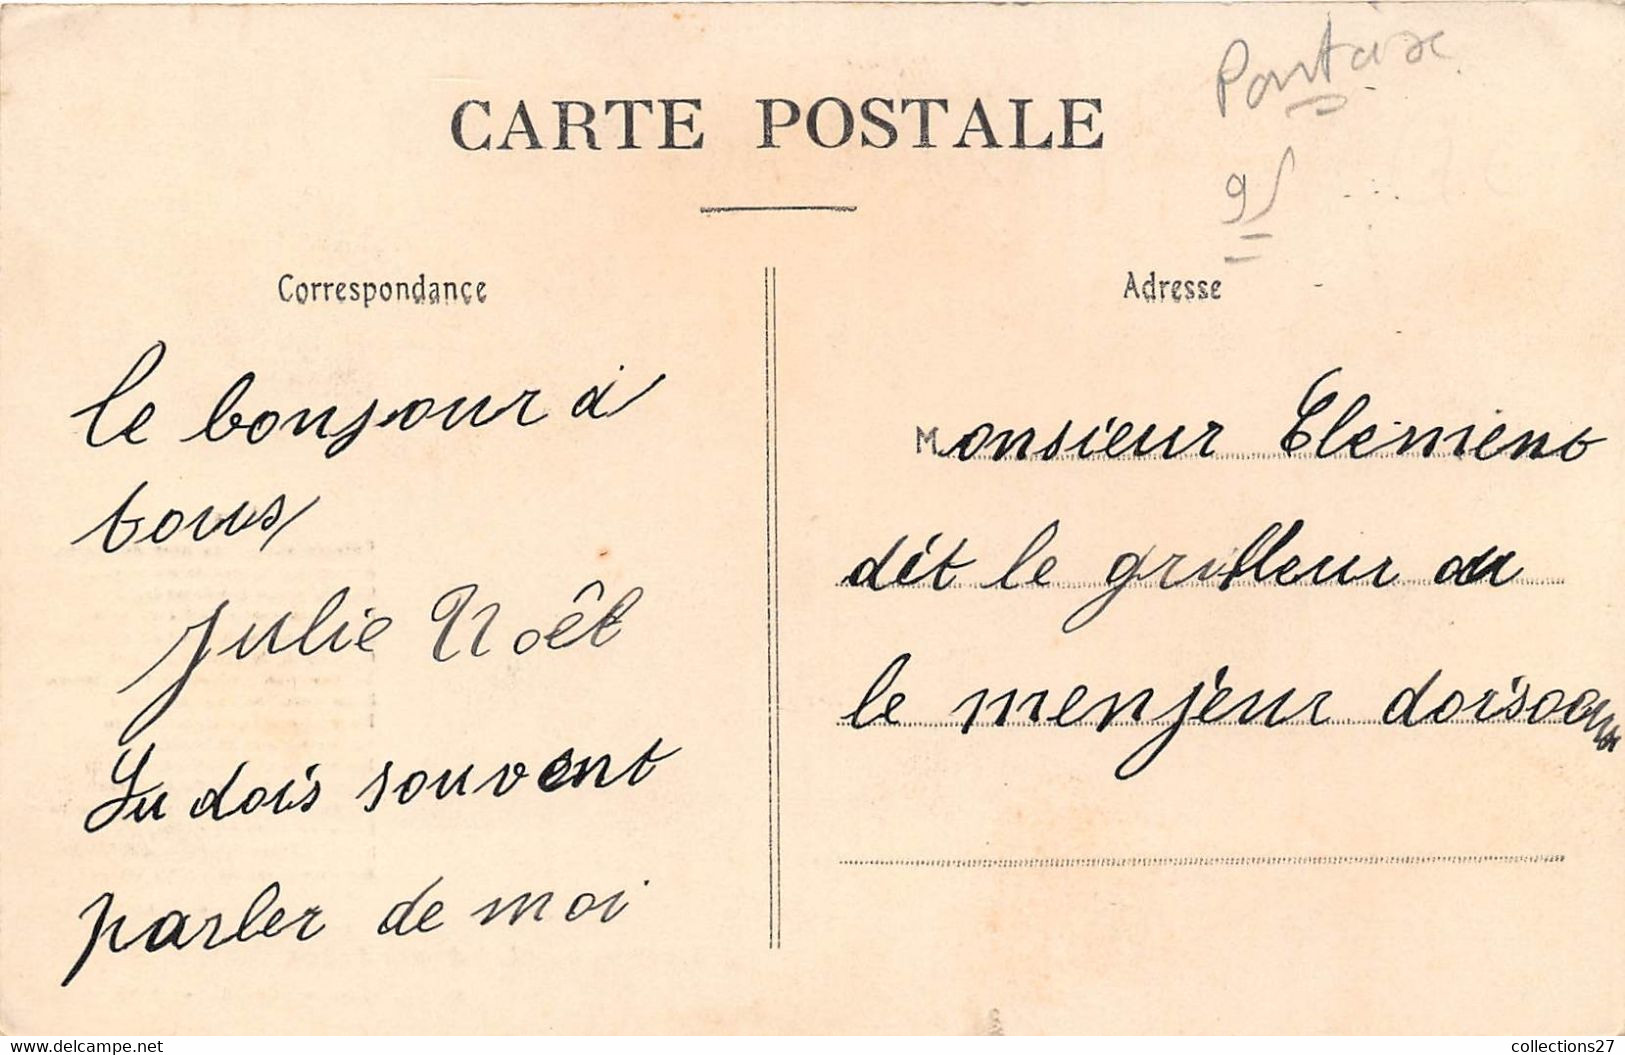 CARTE POSTALE
95
Correspondance
Adresse
le bonjour à
tous
Julie Noêl
Tu dois souvent
parler de moi
Monsieur Clément
dit le grilleur ou
le menjeur
www.delcampe.net
collections27